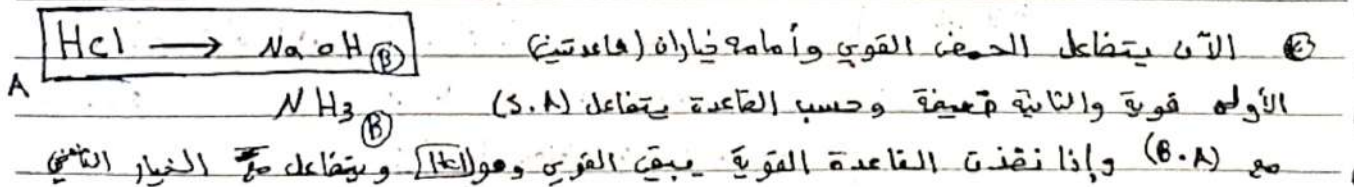 ④ الآن يتفاعل الحمض القوي وأمامه خياران (قاعدتين) HCl → NaOH Ⓑ
A الأولى قوية والثانية ضعيفة وحسب القاعدة يتفاعل (S.A) NH3 Ⓑ
مع (B.A) وإذا نفذت القاعدة القوية يبقى القوي وهو HCl ويتفاعل مع الخيار الثاني